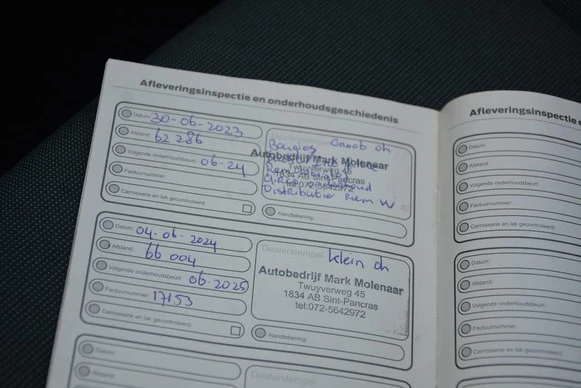 Afleveringsinspectie en onderhoudsgeschiedenis
Datum: 30-06-2023
Afstand: 62 286
Volgende onderhoudsdatum: 06-24
Factuurnummer:
Carrosserie en lak gecontroleerd:
Bougies Groot oh
Autobedrijf Mark Molenaar
Twuyverweg 45
1834 AB Sint-Pancras
tel:072-5642972
Distributie Riem W
Handtekening:
Datum: 04-06-2024
Afstand: 66 004
Volgende onderhoudsdatum: 06-2025
Factuurnummer: 17153
Carrosserie en lak gecontroleerd:
Dealerstempel klein oh
Autobedrijf Mark Molenaar
Twuyverweg 45
1834 AB Sint-Pancras
tel:072-5642972
Handtekening:
Datum:
Afstand:
Dealerstempel
Afleveringsinspectie e
Datum:
Afstand:
Volgende onderhoudsdatum:
Factuurnummer:
Carrosserie en lak gecontroleerd:
Datum:
Afstand:
Volgende onderhoudsdatum:
Factuurnummer:
Carrosserie en lak gecontroleerd: